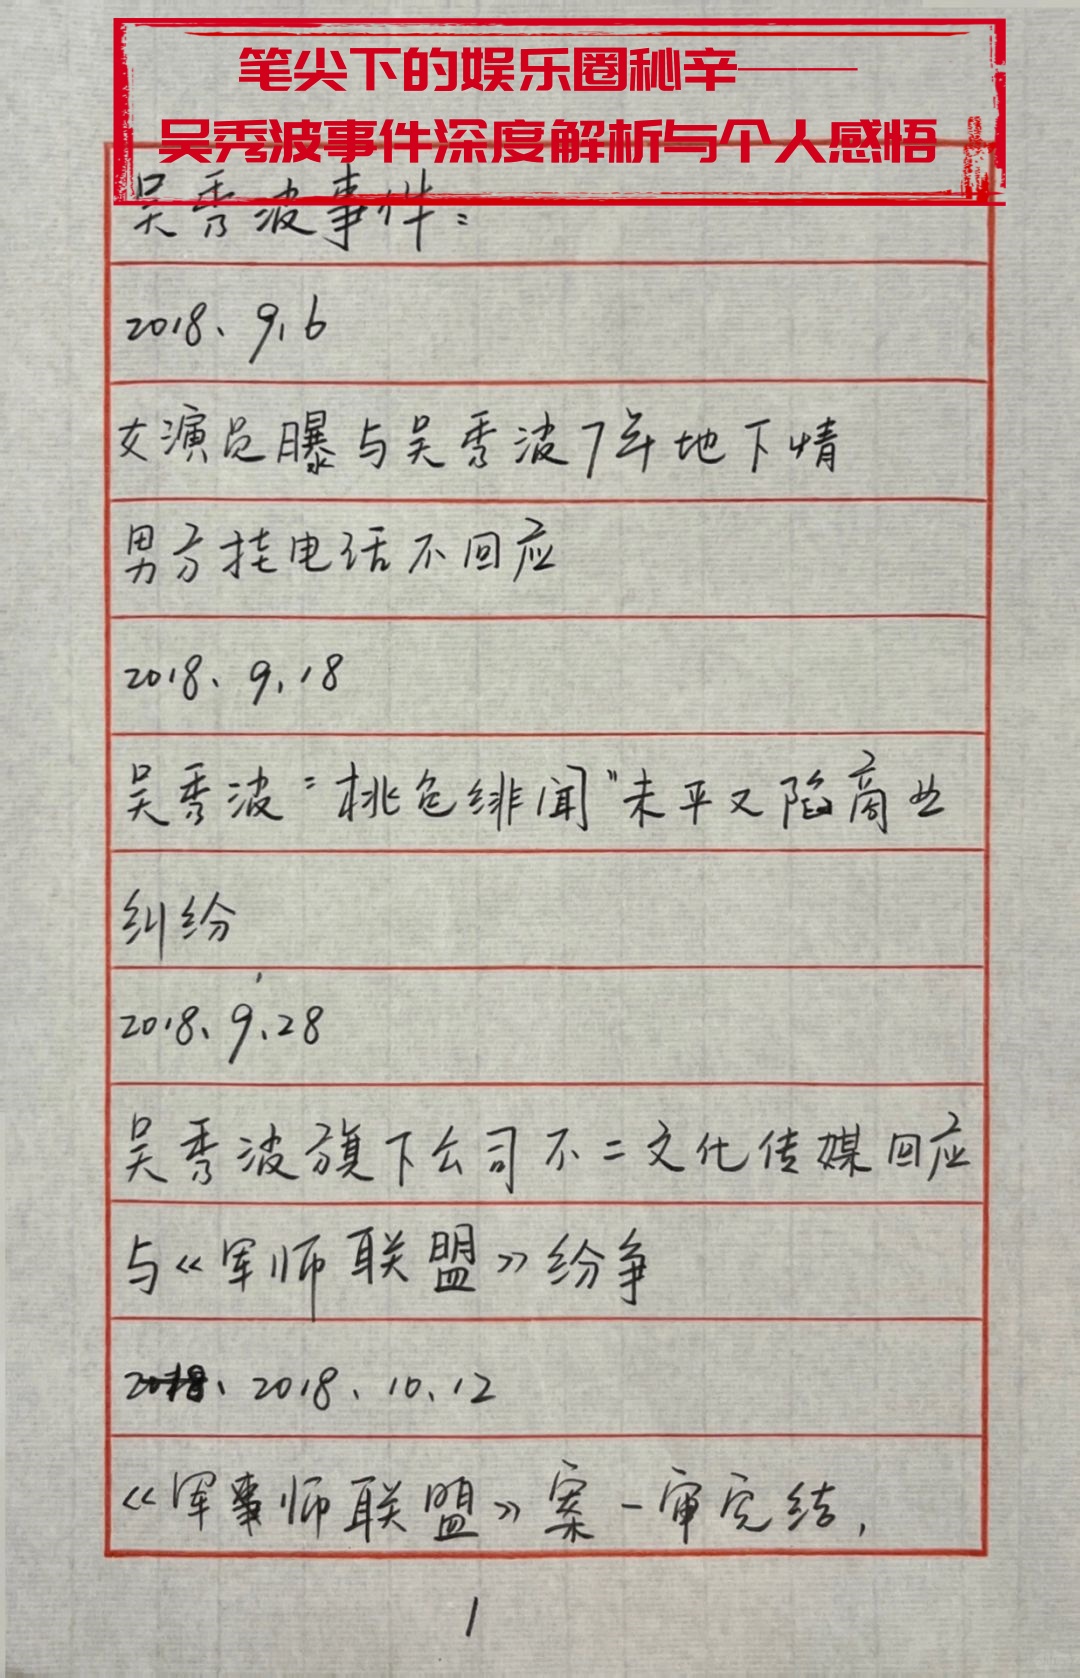 笔尖下的娱乐圈秘辛——
吴秀波事件深度解析与个人感悟
吴秀波事件：
2018、9、6
女演员曝与吴秀波7年地下情
男方挂电话不回应
2018、9、18
吴秀波“桃色绯闻”未平又陷商业
纠纷
2018、9、28
吴秀波旗下公司不二文化传媒回应
与《军师联盟》纷争
2018、2018、10、12
《军事师联盟》案一审完结，
1